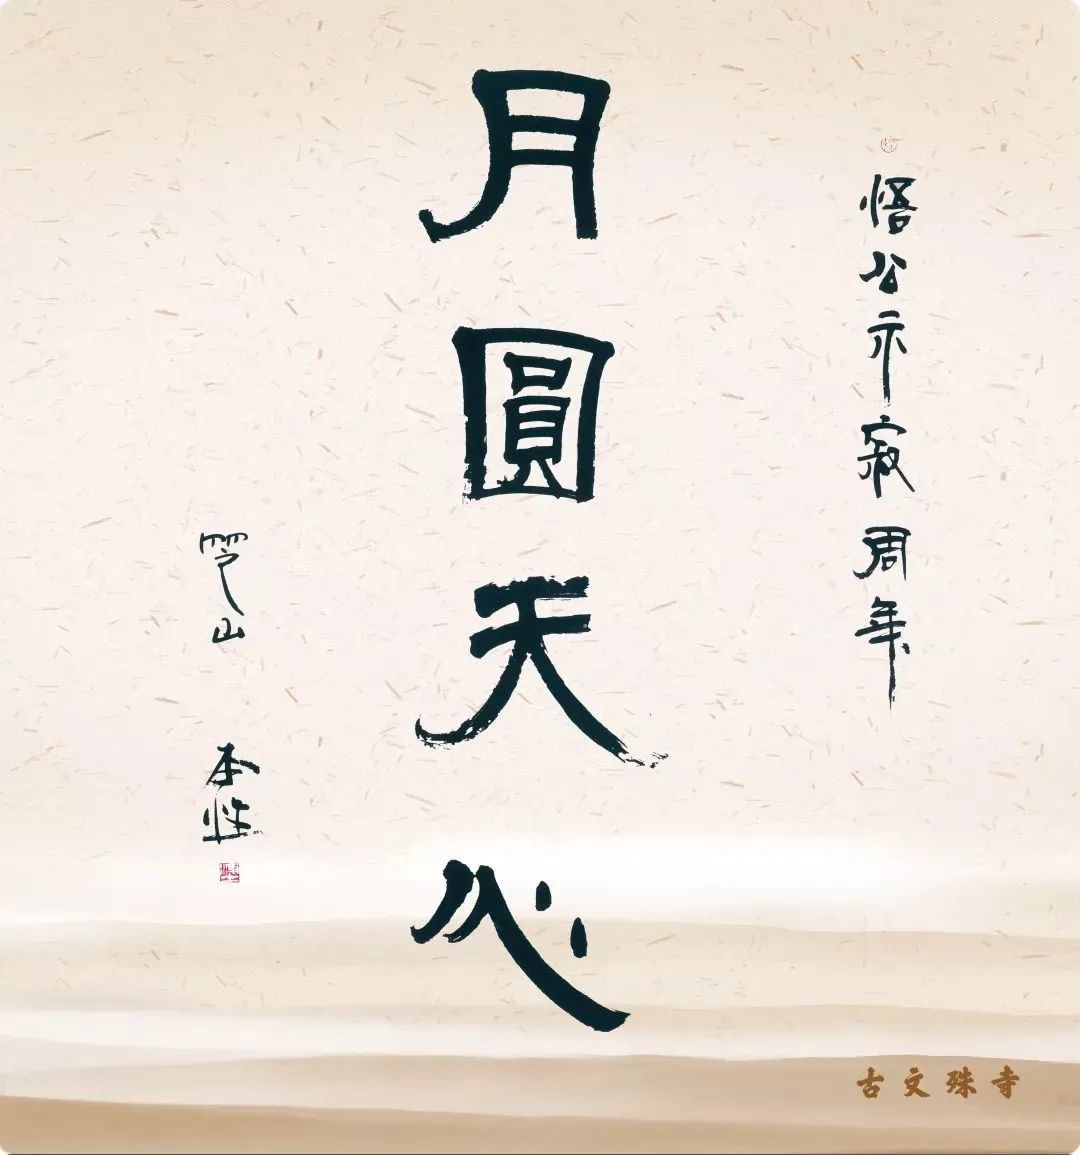 悟公示寂周年
月圓天心
罗山 本性
古文殊寺